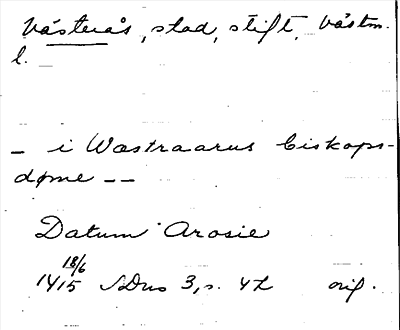 Västerås, stad, stift, Västm.
l.
– i Wæstraarus biskops-
døme – –
Datum Arosie
18/6
1415 SDns 3, s. 42 orig.